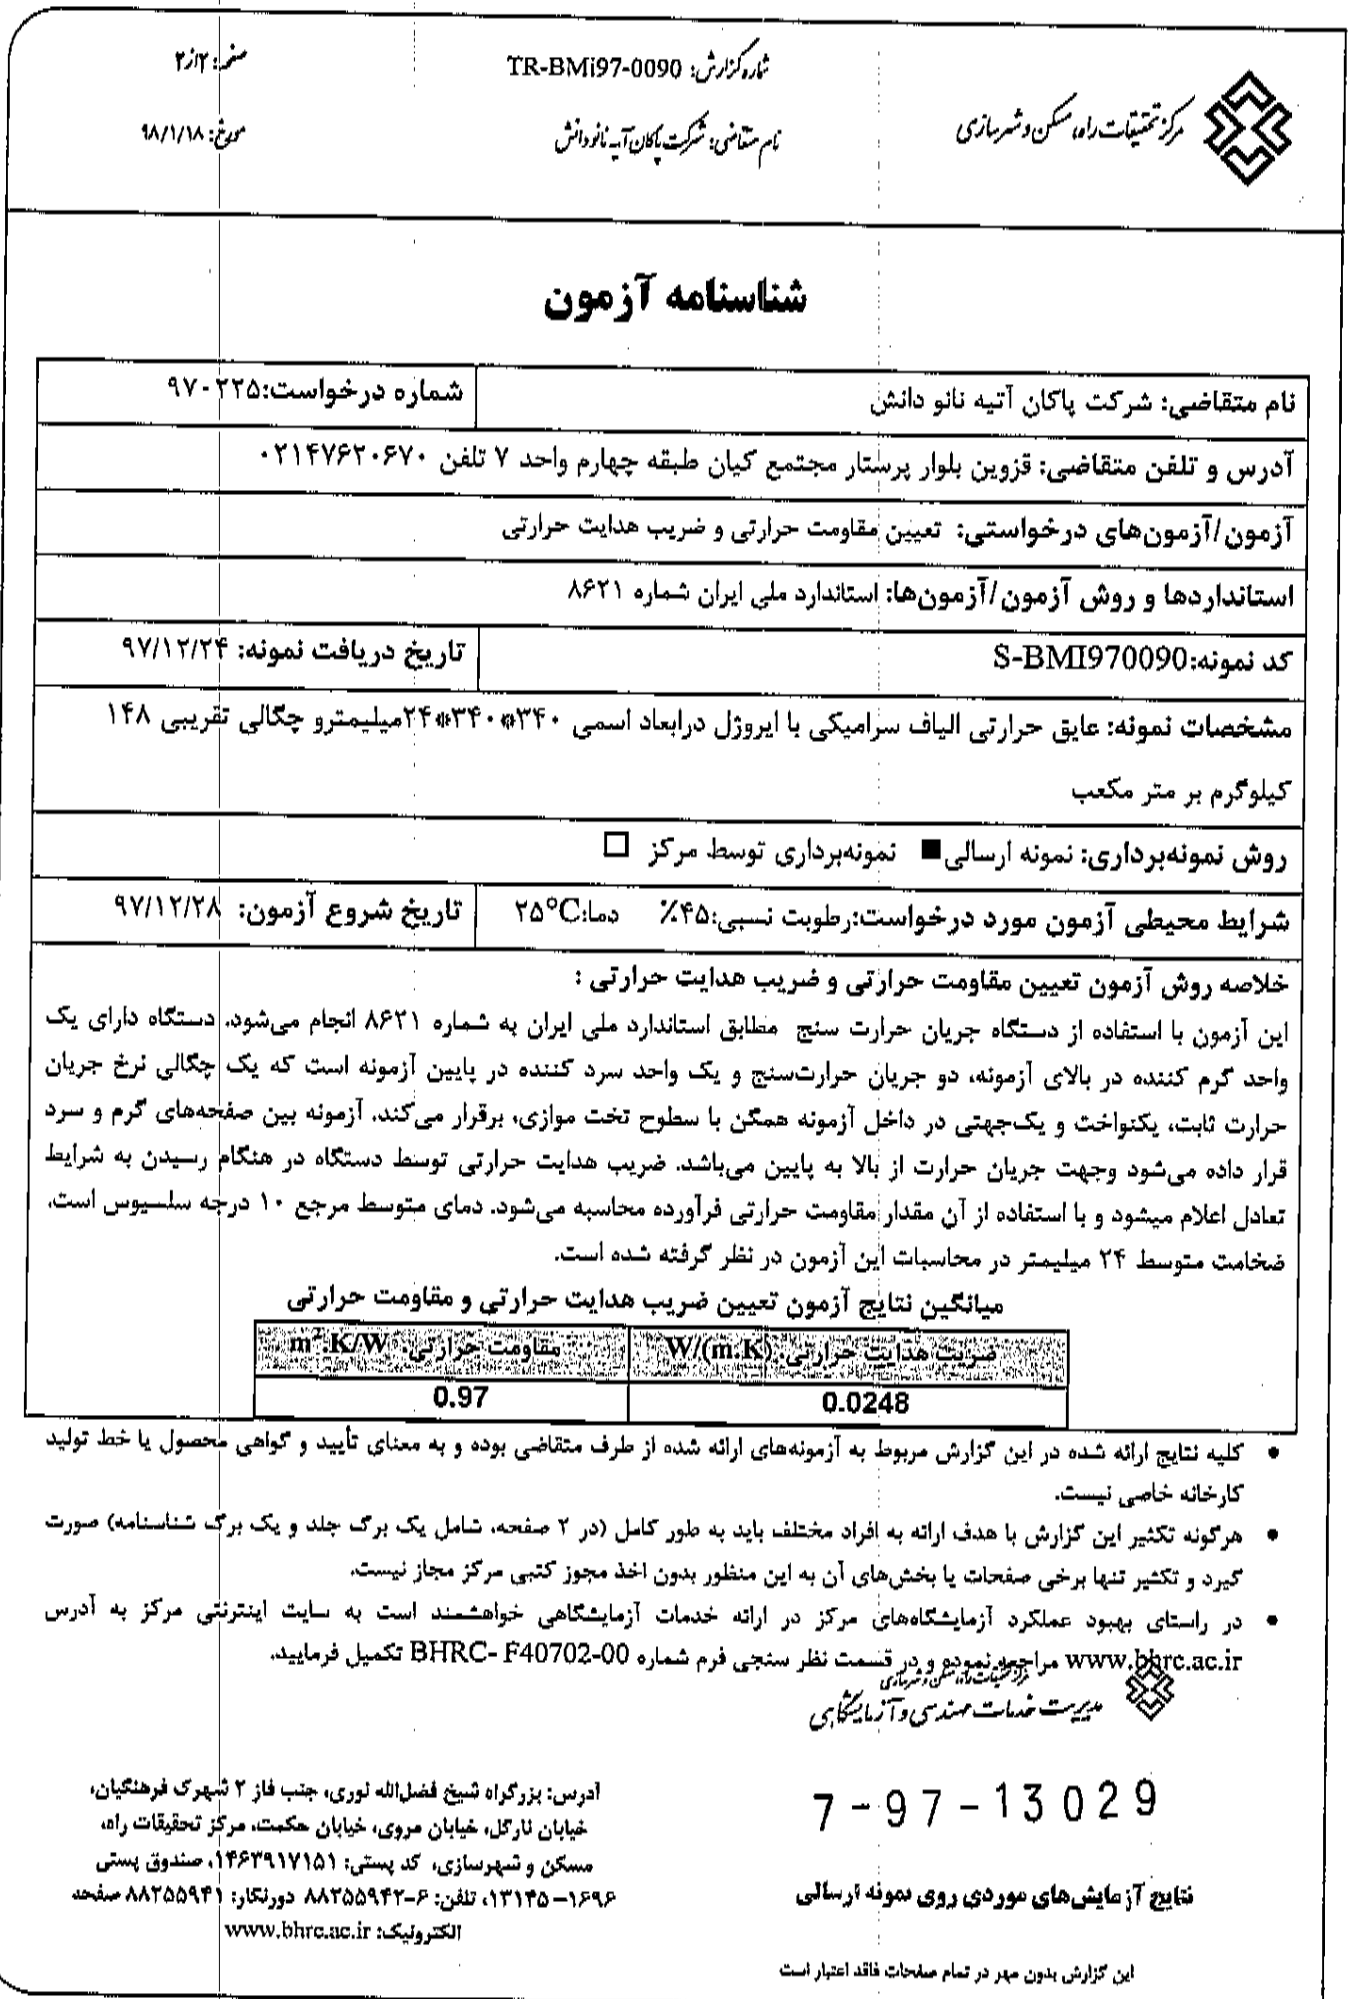 مرکز تحقیقات راه، مسکن و شهرسازی
شماره گزارش: TR-BMi97-0090
صفحه: ۲ از ۲
نام متقاضی: شرکت پاکان آتیه نانو دانش
مورخ: ۹۸/۱/۱۸
شناسنامه آزمون
نام متقاضی: شرکت پاکان آتیه نانو دانش
شماره درخواست:۹۷۰۲۲۵
آدرس و تلفن متقاضی: قزوین بلوار پرستار مجتمع کیان طبقه چهارم واحد ۷ تلفن ۰۲۱۴۷۶۲۰۶۷۰
آزمون/آزمون‌های درخواستی: تعیین مقاومت حرارتی و ضریب هدایت حرارتی
استانداردها و روش آزمون/آزمون‌ها: استاندارد ملی ایران شماره ۸۶۲۱
کد نمونه:S-BMI970090
تاریخ دریافت نمونه: ۹۷/۱۲/۲۴
مشخصات نمونه: عایق حرارتی الیاف سرامیکی با ایروژل درابعاد اسمی ۳۴۰*۳۴۰*۲۴میلیمترو چگالی تقریبی ۱۴۸
کیلوگرم بر متر مکعب
روش نمونه‌برداری: نمونه ارسالی■ نمونه‌برداری توسط مرکز □
شرایط محیطی آزمون مورد درخواست:رطوبت نسبی:۴۵٪ دما:۲۵°C
تاریخ شروع آزمون: ۹۷/۱۲/۲۸
خلاصه روش آزمون تعیین مقاومت حرارتی و ضریب هدایت حرارتی :
این آزمون با استفاده از دستگاه جریان حرارت سنج مطابق استاندارد ملی ایران به شماره ۸۶۲۱ انجام می‌شود. دستگاه دارای یک
واحد گرم کننده در بالای آزمونه، دو جریان حرارت‌سنج و یک واحد سرد کننده در پایین آزمونه است که یک چگالی نرخ جریان
حرارت ثابت، یکنواخت و یک‌جهتی در داخل آزمونه همگن با سطوح تخت موازی، برقرار می‌کند. آزمونه بین صفحه‌های گرم و سرد
قرار داده می‌شود وجهت جریان حرارت از بالا به پایین می‌باشد. ضریب هدایت حرارتی توسط دستگاه در هنگام رسیدن به شرایط
تعادل اعلام میشود و با استفاده از آن مقدار مقاومت حرارتی فرآورده محاسبه می‌شود. دمای متوسط مرجع ۱۰ درجه سلسیوس است.
ضخامت متوسط ۲۴ میلیمتر در محاسبات این آزمون در نظر گرفته شده است.
میانگین نتایج آزمون تعیین ضریب هدایت حرارتی و مقاومت حرارتی
ضریب هدایت حرارتی: W/(m.K)
مقاومت حرارتی: m².K/W
0.0248
0.97
• کلیه نتایج ارائه شده در این گزارش مربوط به آزمونه‌های ارائه شده از طرف متقاضی بوده و به معنای تأیید و گواهی محصول یا خط تولید
کارخانه خاصی نیست.
• هرگونه تکثیر این گزارش با هدف ارائه به افراد مختلف باید به طور کامل (در ۲ صفحه، شامل یک برگ جلد و یک برگ شناسنامه) صورت
گیرد و تکثیر تنها برخی صفحات یا بخش‌های آن به این منظور بدون اخذ مجوز کتبی مرکز مجاز نیست.
• در راستای بهبود عملکرد آزمایشگاه‌های مرکز در ارائه خدمات آزمایشگاهی خواهشمند است به سایت اینترنتی مرکز به آدرس
www.bhrc.ac.ir مراجعه نموده و در قسمت نظر سنجی فرم شماره BHRC- F40702-00 تکمیل فرمایید.
مرکز تحقیقات راه، مسکن و شهرسازی
مدیریت خدمات مهندسی و آزمایشگاهی
7-97-13029
نتایج آزمایش‌های موردی روی نمونه ارسالی
این گزارش بدون مهر در تمام صفحات فاقد اعتبار است
آدرس: بزرگراه شیخ فضل‌الله نوری، جنب فاز ۲ شهرک فرهنگیان،
خیابان نارگل، خیابان مروی، خیابان حکمت، مرکز تحقیقات راه،
مسکن و شهرسازی، کد پستی: ۱۴۶۳۹۱۷۱۵۱، صندوق پستی
۱۳۱۴۵–۱۶۹۶، تلفن: ۶–۸۸۲۵۵۹۴۲ دورنگار: ۸۸۲۵۵۹۴۱ صفحه
الکترونیک: www.bhrc.ac.ir